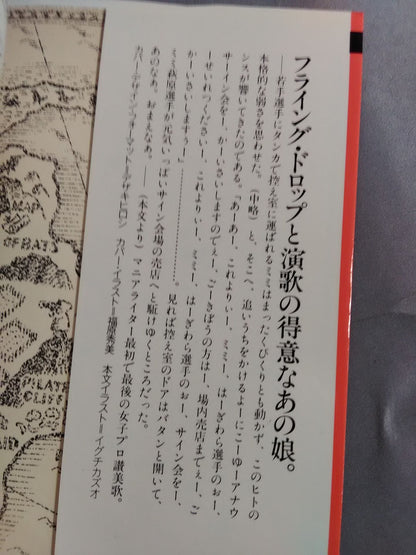 フライング・ドロップと演歌の得意なあの娘。
――若手選手にタンカで控え室に運ばれるミミはまったくぴくりとも動かず、このヒトの
本格的な弱さを思わせた。(中略)と、そこへ、追いうちをかけるよーにこーゆーアナウ
ンスが響いてきたのである。「あーあー、これよりぃー、ミミー、はーぎわら選手のぉー、
サーイン会をー、かーいさいしますのでぇー、ごーきぼうの方はー、場内売店までぇー、ご
ーせいれつくださいー、これよりぃー、ミミー、はーぎわら選手のぉー、サイン会をー、
かーいさいしますぅー」………………。見れば控え室のドアはバタンと開いて、
ミミ萩原選手が元気いっぱいサイン会場の売店へと駈けゆくところだった。
あのなあ、おまえなあ。――(本文より)マニアライター最初で最後の女子プロ讃美歌。
カバーデザイン・フォーマット=アザキヒロシ カバーイラスト=福原秀美 本文イラスト=イグチカズオ
OF BATS
PLATE
CLIFF